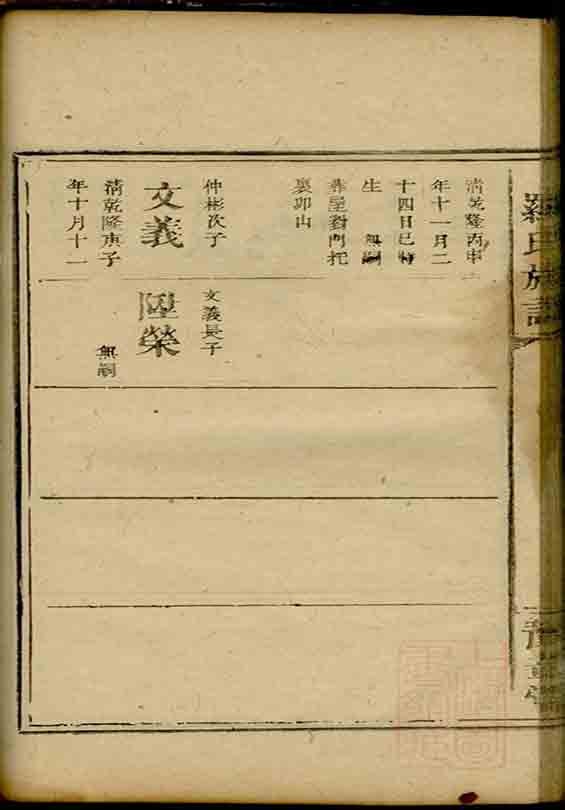 羅氏族譜
清乾隆丙申
年十一月二
十四日巳時
生 無嗣
葬屋對門托
裏卯山
仲彬次子
文義
清乾隆庚子
年十月十一
文義長子
陞榮
無嗣
豫章堂